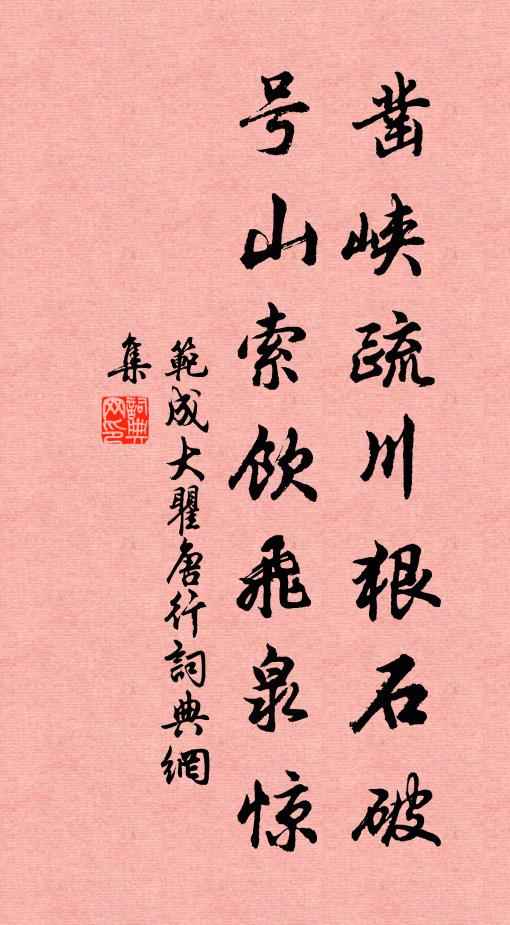 凿峡疏川狠石破
号山索饮飞泉惊
範成大瞿唐行詞典網
集
詞典网印